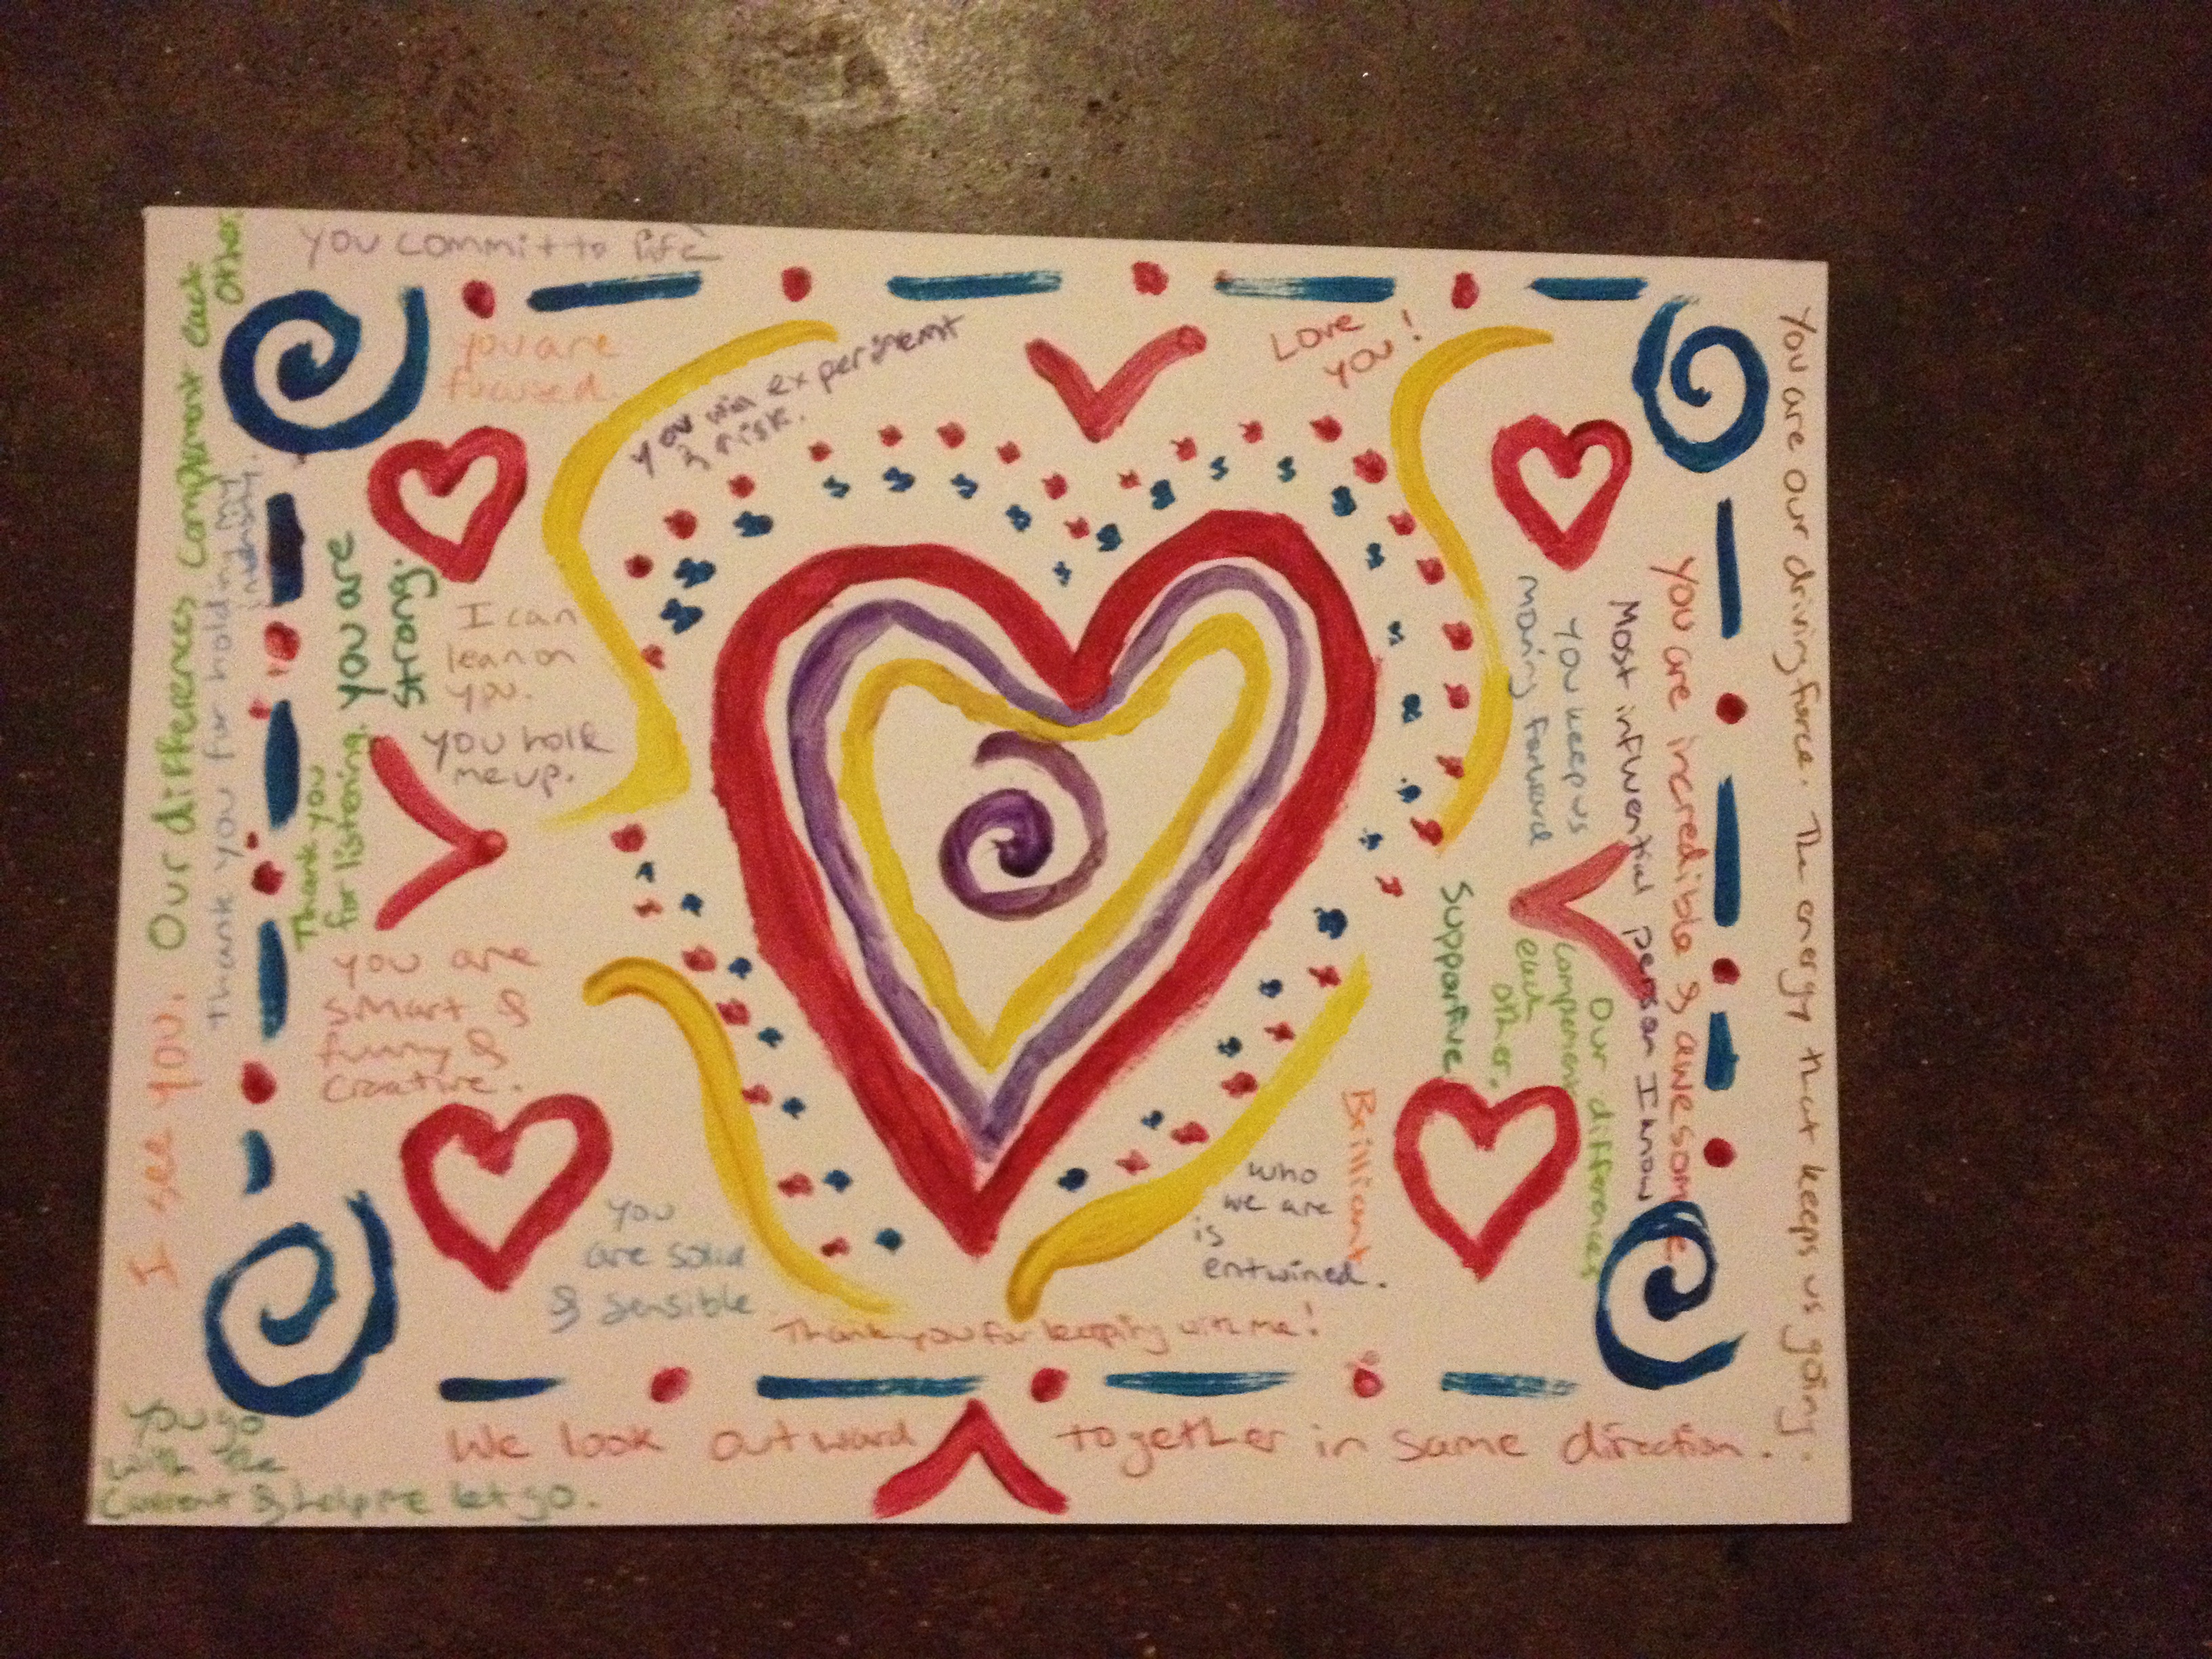 You commit to life
you are
focused.
you will experiment
& risk.
Love
you!
Our differences complement each
other.
Thank you for holding my
intensity.
I see you.
you are
strong.
Thank you
for listening.
I can
lean on
you.
you hold
me up.
you are
smart &
funny &
creative.
you
are solid
& sensible
You go
with the
current & help me let go.
Thank you for keeping with me!
We look outward together in same direction.
who
we are
is
entwined.
Brilliant
Supportive
you keep us
moving forward
Our differences
complement
each
other.
Most influential person I know
You are incredible & awesome
You are our driving force. The energy that keeps us going.